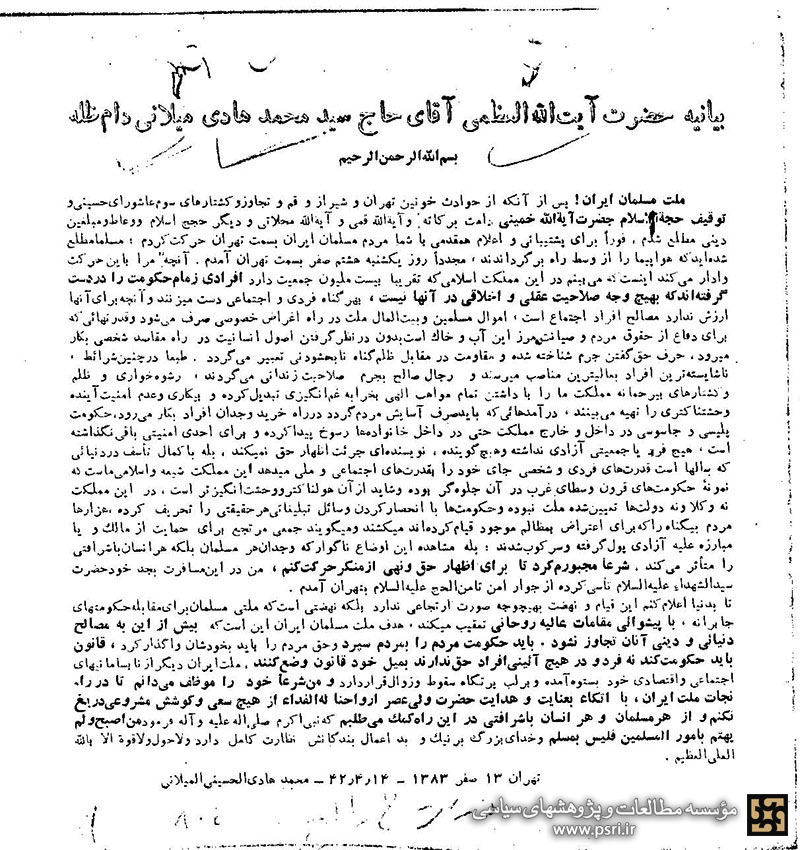 بیانیه حضرت آیت الله العظمی آقای حاج سید محمد هادی میلانی دام ظله
بسم الله الرحمن الرحیم
ملت مسلمان ایران! پس از آنکه از حوادث خونین تهران و شیراز و قم و تجاوز و کشتارهای سوم عاشورای حسینی و
توقیف حجة الاسلام حضرت آیة الله خمینی دامت برکاته و آیة الله قمی و آیة الله محلاتی و دیگر حجج اسلام و وعاظ و مبلغین
دینی مطلع شدم ، فوراً برای پشتیبانی و اعلام همقدمی با شما مردم مسلمان ایران بسمت تهران حرکت کردم : مسلما مطلع
شده‌اید که هواپیما را از وسط راه برگرداندند ، مجدداً روز یکشنبه هشتم صفر بسمت تهران آمدم . آنچه مرا باین حرکت
وادار می‌کند اینست که می‌بینم در این مملکت اسلامی که تقریبا بیست ملیون جمعیت دارد افرادی زمام حکومت را در دست
گرفته‌اند که بهیچ وجه صلاحیت عقلی و اخلاقی در آنها نیست ، بهر گناه فردی و اجتماعی دست میزنند و آنچه برای آنها
ارزش ندارد مصالح افراد اجتماع است ، اموال مسلمین و بیت المال ملت در راه اغراض خصوصی صرف می‌شود و قدرتهائی که
برای دفاع از حقوق مردم و صیانت مرز این آب و خاک است بدون در نظر گرفتن اصول انسانیت در راه مقاصد شخصی بکار
میرود ، حرف حق گفتن جرم شناخته شده و مقاومت در مقابل ظلم گناه نابخشودنی تعبیر می‌گردد . طبعا در چنین شرائط ،
ناشایسته‌ترین افراد بعالیترین مناصب میرسند و رجال صالح بجرم صلاحیت زندانی می‌گردند ، رشوه‌خواری و ظلم
و کشتارهای بیرحمانه مملکت ما را با داشتن تمام مواهب الهی بخرابه غم‌انگیزی تبدیل کرده و بیکاری و عدم امنیت آینده
وحشتناکتری را تهیه می‌بینند ، درآمدهائی که باید صرف آسایش مردم گردد در راه خرید وجدان افراد بکار می‌رود، حکومت
پلیسی و جاسوسی در داخل و خارج مملکت حتی در داخل خانواده‌ها رسوخ پیدا کرده و برای احدی امنیتی باقی نگذاشته
است ، هیچ فرد یا جمعیتی آزادی نداشته و هیچ گوینده ، نویسنده‌ای جرئت اظهار حق نمیکند ، بله با کمال تأسف در دنیائی
که سالها است قدرت‌های فردی و شخصی جای خود را بقدرت‌های اجتماعی و ملی میدهد این مملکت شیعه و اسلامی ماست که
نمونهٔ حکومت‌های قرون وسطای غرب در آن جلوه‌گر بوده و شاید از آن هولناکتر و وحشت‌انگیزتر است ، در این مملکت
نه وکلا و نه دولت‌ها تعیین شده ملت نبوده و حکومت‌ها با انحصار کردن وسائل تبلیغاتی هر حقیقتی را تحریف کرده ، هزارها
مردم بیگناه را که برای اعتراض بمظالم موجود قیام کرده‌اند میکشند و میگویند جمعی مرتجع برای حمایت از مالک و یا
مبارزه علیه آزادی پول گرفته و سرکوب شدند ؛ بله مشاهده این اوضاع ناگوار که وجدان هر مسلمان بلکه هر انسان باشرافتی
را متأثر می‌کند ، شرعا مجبورم کرد تا برای اظهار حق و نهی از منکر حرکت کنم ، من در این مسافرت بجد خود حضرت
سید الشهداء علیه السلام تأسی کرده از جوار امن ثامن الحج علیه السلام بتهران آمدم .
تا بدنیا اعلام کنم این قیام و نهضت بهیچوجه صورت ارتجاعی ندارد بلکه نهضتی است که ملتی مسلمان برای مقابله حکومتهای
جابرانه ، با پیشوائی مقامات عالیه روحانی تعقیب میکند ، هدف ملت مسلمان ایران این است که بیش از این به مصالح
دنیائی و دینی آنان تجاوز نشود . باید حکومت مردم را بمردم سپرد و حق مردم را باید بخودشان واگذار کرد ، قانون
باید حکومت کند نه فرد و در هیچ آئینی افراد حق ندارند بمیل خود قانون وضع کنند . ملت ایران دیگر از نابسامانیهای
اجتماعی و اقتصادی خود بستوه آمده و بر لب پرتگاه سقوط و زوال قرار دارد و من شرعا خود را موظف می‌دانم تا در راه
نجات ملت ایران ، با اتکاء بعنایت و هدایت حضرت ولی عصر ارواحنا له الفداء از هیچ سعی و کوشش مشروعی دریغ
نکنم و از هر مسلمان و هر انسان باشرافتی در این راه کمک می‌طلبم که نبی اکرم صلی اله علیه و آله فرمود من اصبح ولم
یهتم بامور المسلمین فلیس بمسلم و خدای بزرگ بر نیک و بد اعمال بندگانش نظارت کامل دارد ولا حول ولا قوة الا بالله
العلی العظیم .
تهران ۱۳ صفر ۱۳۸۳ – ۴۲٫۴٫۱۴ – محمد هادی الحسینی المیلانی
مؤسسه مطالعات و پژوهشهای سیاسی
www.psri.ir